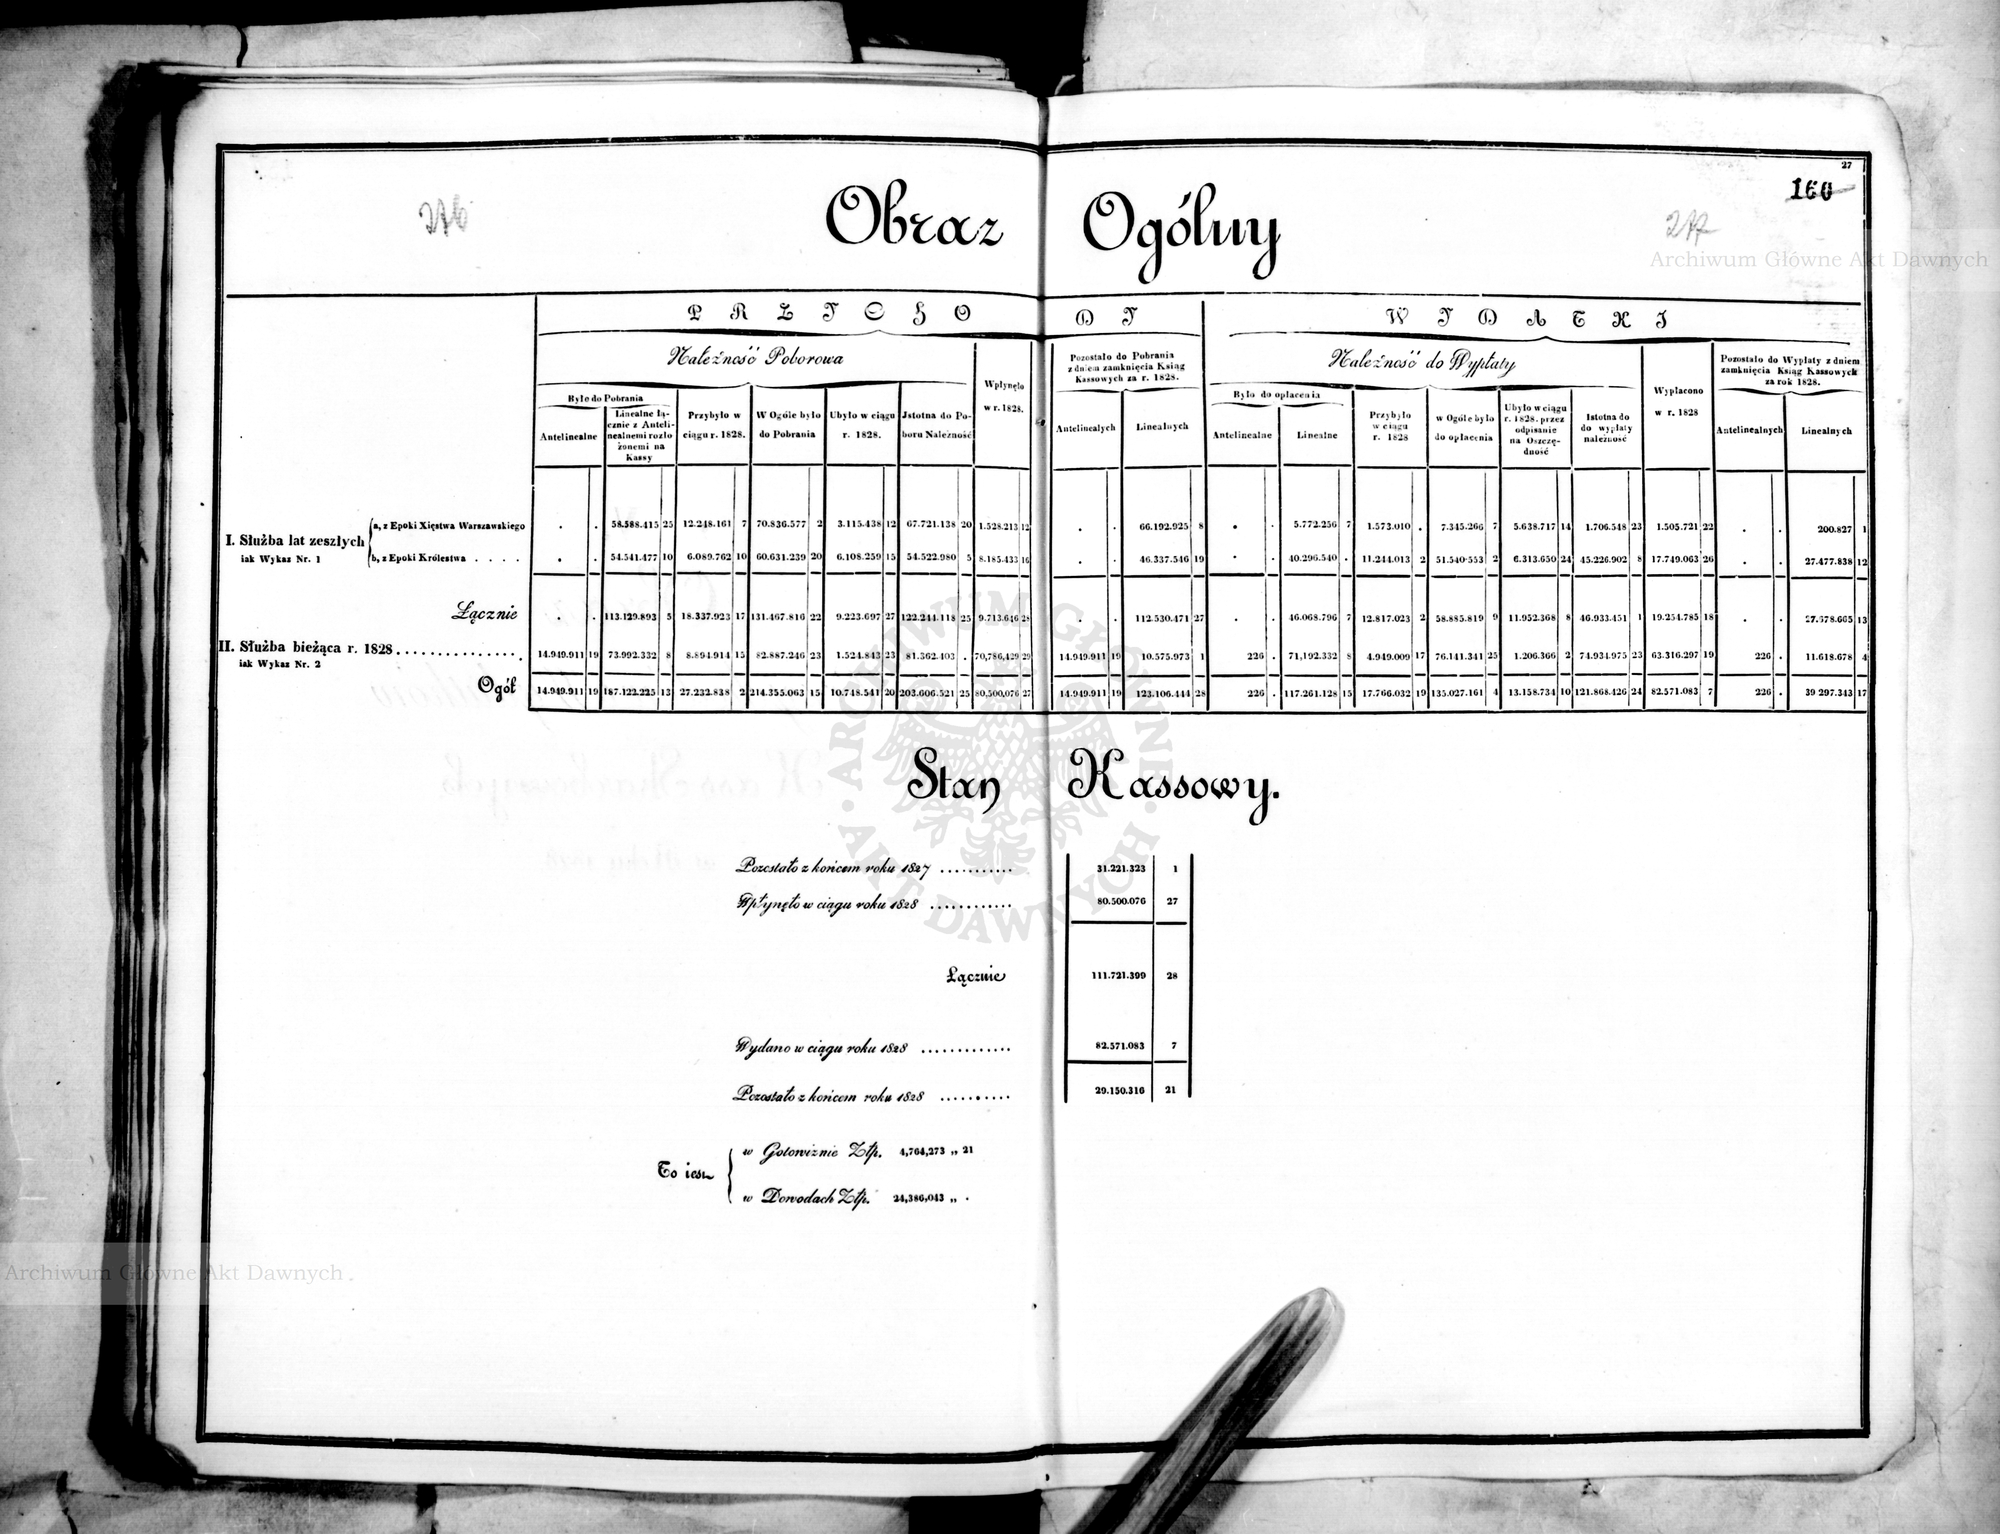 27
160
276
277
Obraz Ogólny
PRZYCHODY
WYDATKI
Należność Poborowa
Wpłynęło w r. 1828.
Pozostało do Pobrania z dniem zamknięcia Ksiąg Kassowych za r. 1828.
Należność do Wypłaty
Wypłacono w r. 1828
Pozostało do Wypłaty z dniem zamknięcia Ksiąg Kassowych za rok 1828.
Było do Pobrania
Antelinealne
Linealne łącznie z Antelinealnemi rozłożonemi na Kassy
Przybyło w ciągu r. 1828.
W Ogóle było do Pobrania
Ubyło w ciągu r. 1828.
Jstotna do Poboru Należność
Antelinealych
Linealnych
Było do opłacenia
Antelinealne
Linealne
Przybyło w ciągu r. 1828
w Ogóle było do opłacenia
Ubyło w ciągu r. 1828. przez odpisanie na Oszczędność
Istotna do do wypłaty należność
Antelinealnych
Linealnych
I. Służba lat zeszłych
iak Wykaz Nr. 1
a, z Epoki Xięstwa Warszawskiego . . 58.588.415 25 12.248.161 7 70.836.577 2 3.115.438 12 67.721.138 20 1.528.213 12 . . 66.192.925 8 . . 5.772.256 7 1.573.010 . 7.345.266 7 5.638.717 14 1.706.548 23 1.505.721 22 . . 200.827 1
b, z Epoki Królestwa . . . . . . 54.541.477 10 6.089.762 10 60.631.239 20 6.108.259 15 54.522.980 5 8.185.433 16 . . 46.337.546 19 . . 40.296.540 . 11.244.013 2 51.540.553 2 6.313.650 24 45.226.902 8 17.749.063 26 . . 27.477.838 12
Łącznie . . 113.129.893 5 18.337.923 17 131.467.816 22 9.223.697 27 122.244.118 25 9.713.646 28 . . 112.530.471 27 . . 46.068.796 7 12.817.023 2 58.885.819 9 11.952.368 8 46.933.451 1 19.254.785 18 . . 27.678.665 13
II. Służba bieżąca r. 1828 . . . . . . . . . . . . . . 14.949.911 19 73.992.332 8 8.894.914 15 82.887.246 23 1.524.843 23 81.362.403 . 70,786,429 29 14.949.911 19 10.575.973 1 226 . 71,192.332 8 4.949.009 17 76.141.341 25 1.206.366 2 74.934.975 23 63.316.297 19 226 . 11.618.678 4
iak Wykaz Nr. 2
Ogół 14.949.911 19 187.122.225 13 27.232.838 2 214.355.063 15 10.748.541 20 203.606.521 25 80,500,076 27 14.949.911 19 123.106.444 28 226 . 117.261.128 15 17.766.032 19 135.027.161 4 13.158.734 10 121.868.426 24 82.571.083 7 226 . 39 297.343 17
Stan Kassowy.
Pozostało z końcem roku 1827 . . . . . . . . . . . 31.221.323 1
Wpłynęło w ciągu roku 1828 . . . . . . . . . . . . 80.500.076 27
Łącznie 111.721.399 28
Wydano w ciągu roku 1828 . . . . . . . . . . . . . 82.571.083 7
Pozostało z końcem roku 1828 . . . . . . . . . . 29.150.316 21
To iest
w Gotowiznie Złp. 4,764,273 „ 21
w Dowodach Złp. 24,386,043 „ .
Archiwum Główne Akt Dawnych
Archiwum Główne Akt Dawnych
ARCHIWUM GŁÓWNE AKT DAWNYCH